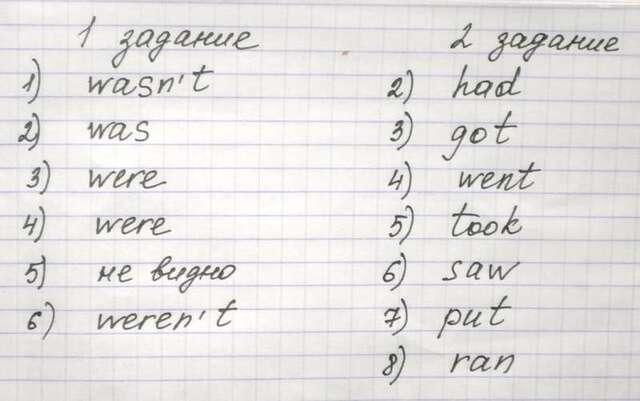 1 задание
1) wasn't
2) was
3) were
4) were
5) не видно
6) weren't
2 задание
2) had
3) got
4) went
5) took
6) saw
7) put
8) ran